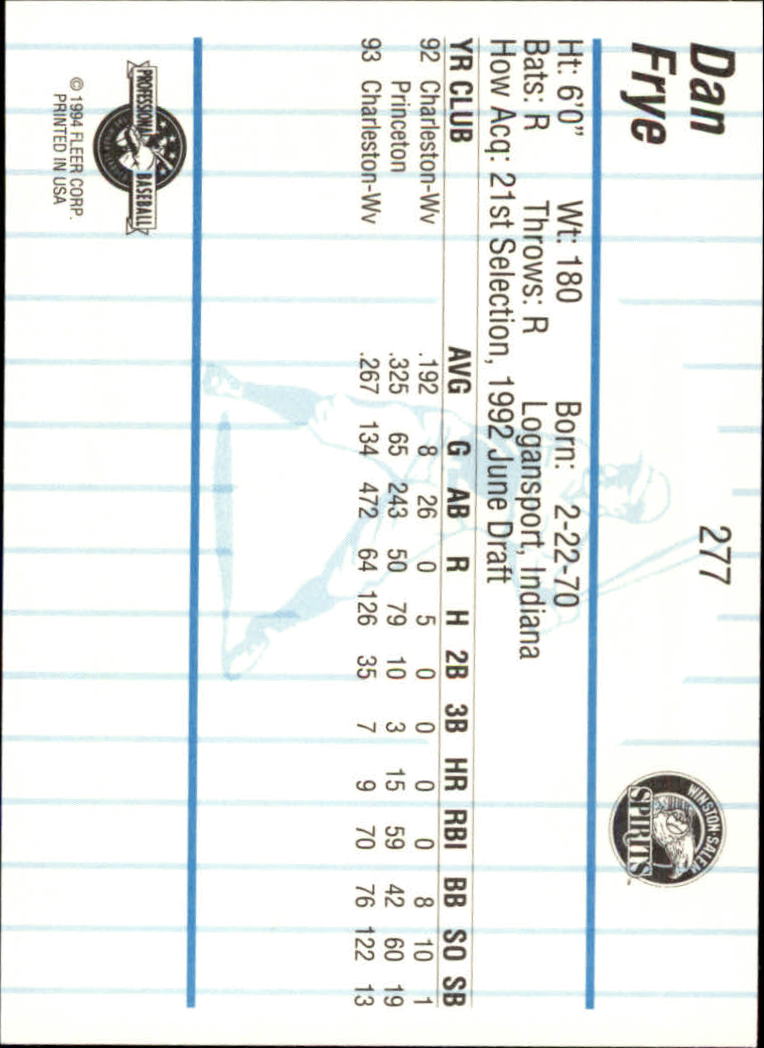 Dan
Frye
277
WINSTON-SALEM
SPIRITS
Ht: 6'0" Wt: 180 Born: 2-22-70
Bats: R Throws: R Logansport, Indiana
How Acq: 21st Selection, 1992 June Draft
YR CLUB AVG G AB R H 2B 3B HR RBI BB SO SB
92 Charleston-Wv .192 8 26 0 5 0 0 0 0 8 10 1
Princeton .325 65 243 50 79 10 3 15 59 42 60 19
93 Charleston-Wv .267 134 472 64 126 35 7 9 70 76 122 13
PROFESSIONAL BASEBALL
© 1994 FLEER CORP.
PRINTED IN USA